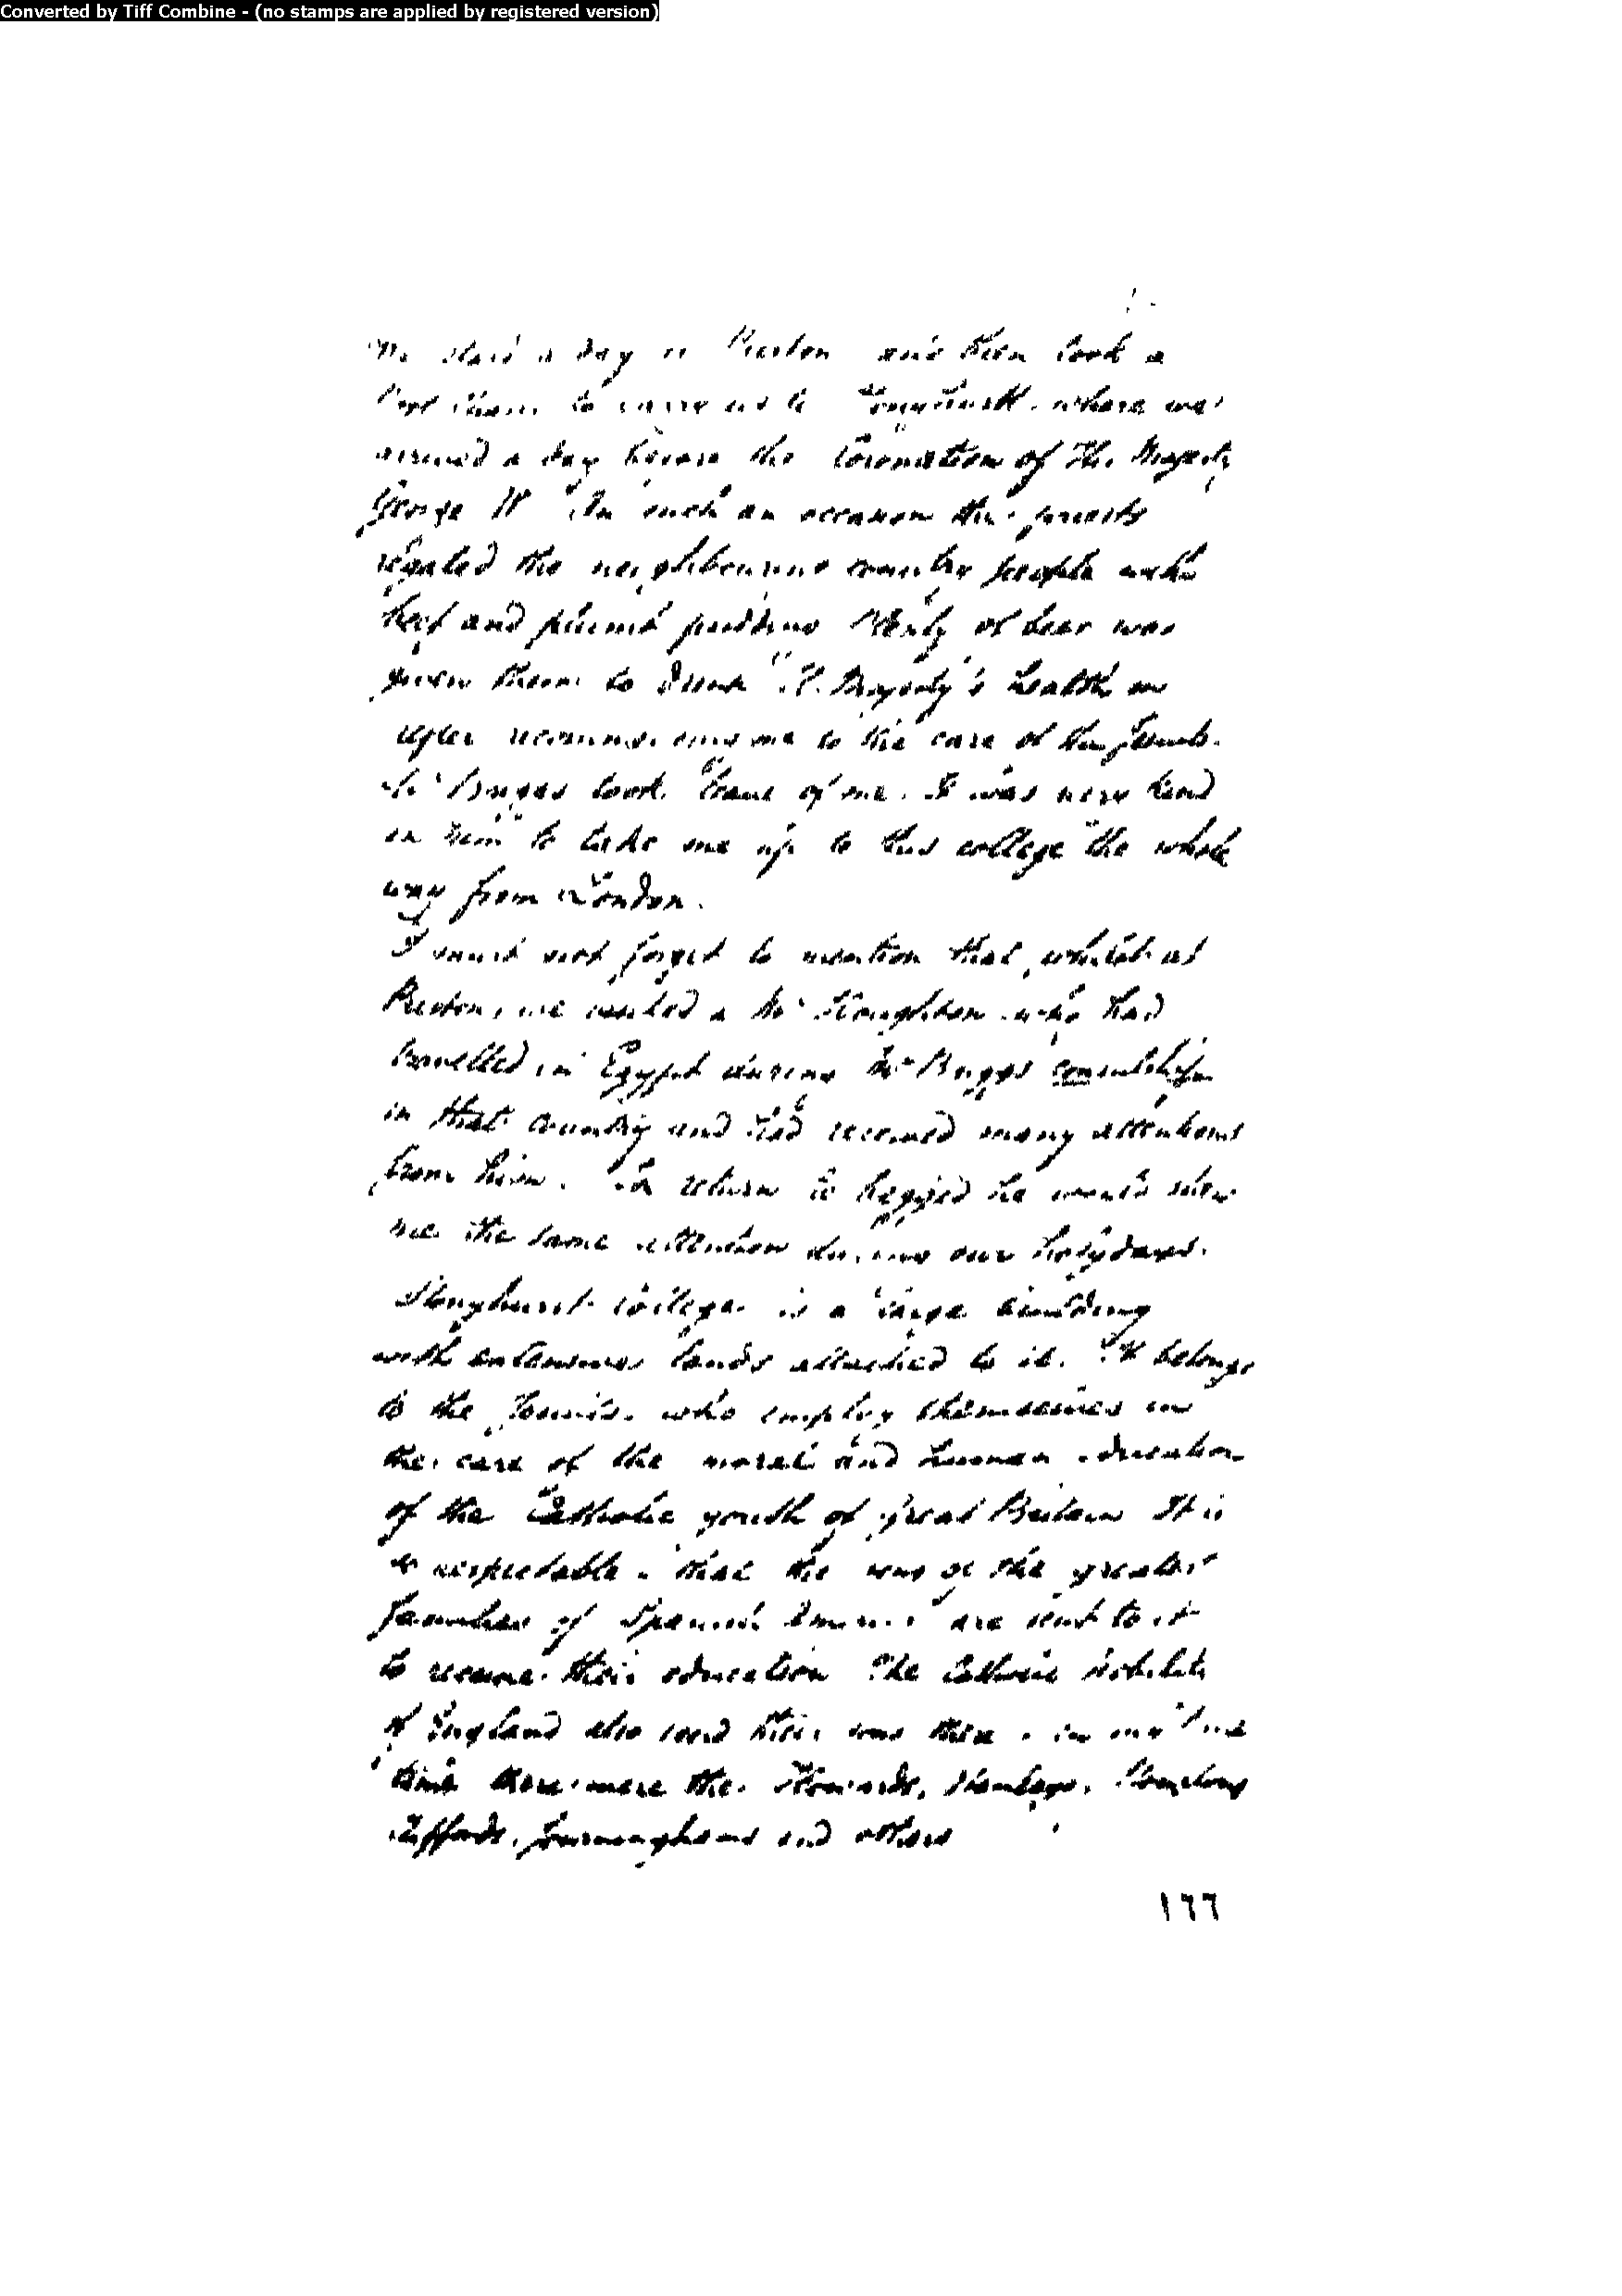 Converted by Tiff Combine - (no stamps are applied by registered version)
We staid a day at Preston and then took a
Post chaise to carry us to Stonyhurst, where we
arrived a day before the Coronation of His Majesty
George IV. On such an occasion the priests
regaled the neighbouring country people with
beef and plumb pudding Plenty of beer was
given them to drink H. Majesty's health in
After recommending me to the care of the Jesuits
Mr Briggs took leave of me. It was very kind
in him to take me up to this college the whole
way from London.
I must not forget to mention that, whilst at
Preston, we visited a Mr Houghton who had
travelled in Egypt during Mr Briggs consulship
in that country and had received many attentions
from him. In return he begged he would shew
me the same attention during our holydays.
Stonyhurst College is a large building
with extensive lands attached to it. It belongs
to the Jesuits, who employ themselves in
the care of the moral and human education
of the Catholic youth of Great Britain It is
so respectable that the sons of the greatest
families of Spanish are sent to it
to receive their education The Catholic nobility
of England also send their sons there. in my
time there were the Howards, Stanleys,
Cliffords, and others
١٦٦